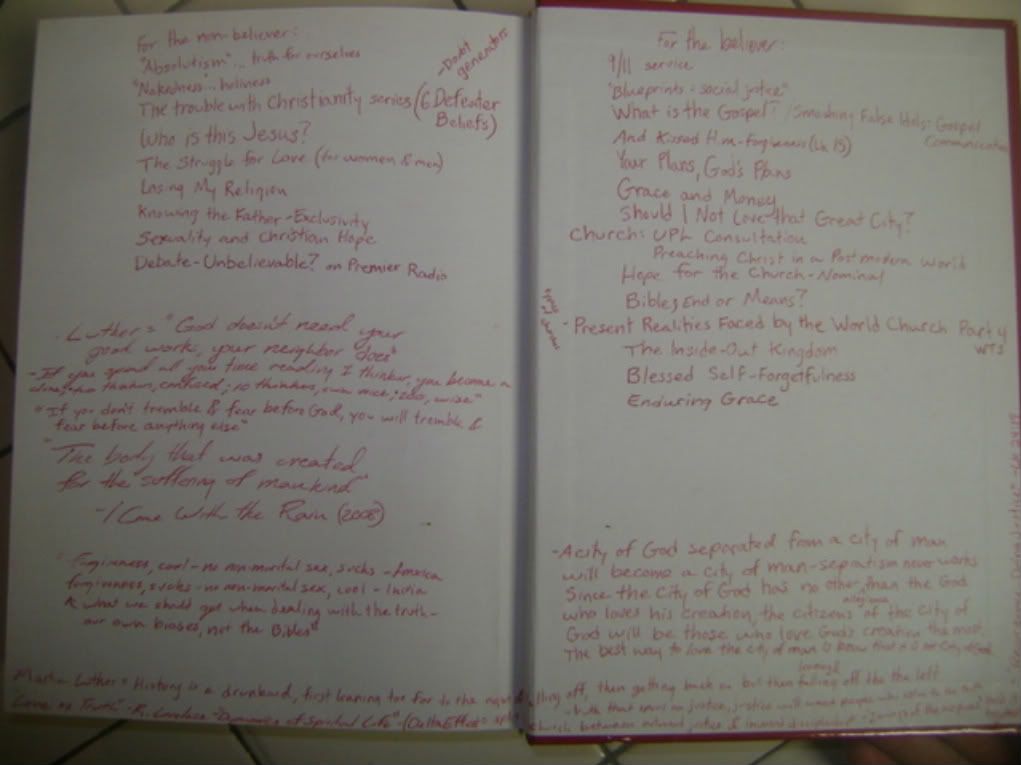 For the non-believer:
"Absolutism"... truth for ourselves
"Nakedness"... holiness
The trouble with Christianity series (6 Defeater Beliefs)
-Doubt generators
Who is this Jesus?
The Struggle for Love (for women & men)
Losing My Religion
Knowing the Father - Exclusivity
Sexuality and Christian Hope
Debate - Unbelievable? on Premier Radio
Luther = "God doesn't need your
good work, your neighbor does"
- If you spend all your time reading 1 thinker, you become a
clone; two thinkers, confused; 10 thinkers, ; 200, wise"
"If you don't tremble & fear before God, you will tremble &
fear before anything else"
"The body that was created
for the suffering of mankind"
- I Come With the Rain (2008)
"Forgiveness, cool - no non-marital sex, sucks - America
forgiveness, sucks - no non-marital sex, cool -
what we should get when dealing with the truth -
our own biases, not the Bibles"
Martin Luther = History is a drunkard, first leaning too far to the right & falling off, then getting back on but then leaning falling off the left
Love vs Truth" - R. Lovelace - "Dynamics of Spiritual Life" - (Delta Effect =
For the believer:
9/11 service
"Blueprints = social justice"
What is the Gospel? / Smashing False Idols = Gospel
Communication
And Kissed Him - Forgiveness (Lk 15)
Your Plans, God's Plans
Grace and Money
Should I Not Love that Great City?
Church: UPL Consultation
Preaching Christ in a Postmodern World
Hope for the Church - Nominal
Bible; End or Means?
- Present Realities Faced by the World Church Part 4
WTS
The Inside-Out Kingdom
Blessed Self-Forgetfulness
Enduring Grace
- A city of God separated from a city of man
will become a city of man - sepratism never works
Since the City of God has no other allegiance than the God
who loves his creation, the citizens of the city of
God will be those who love God's creation the most
The best way to love the city of man is know that it is not City of God
church between outward justice & inward discipleship